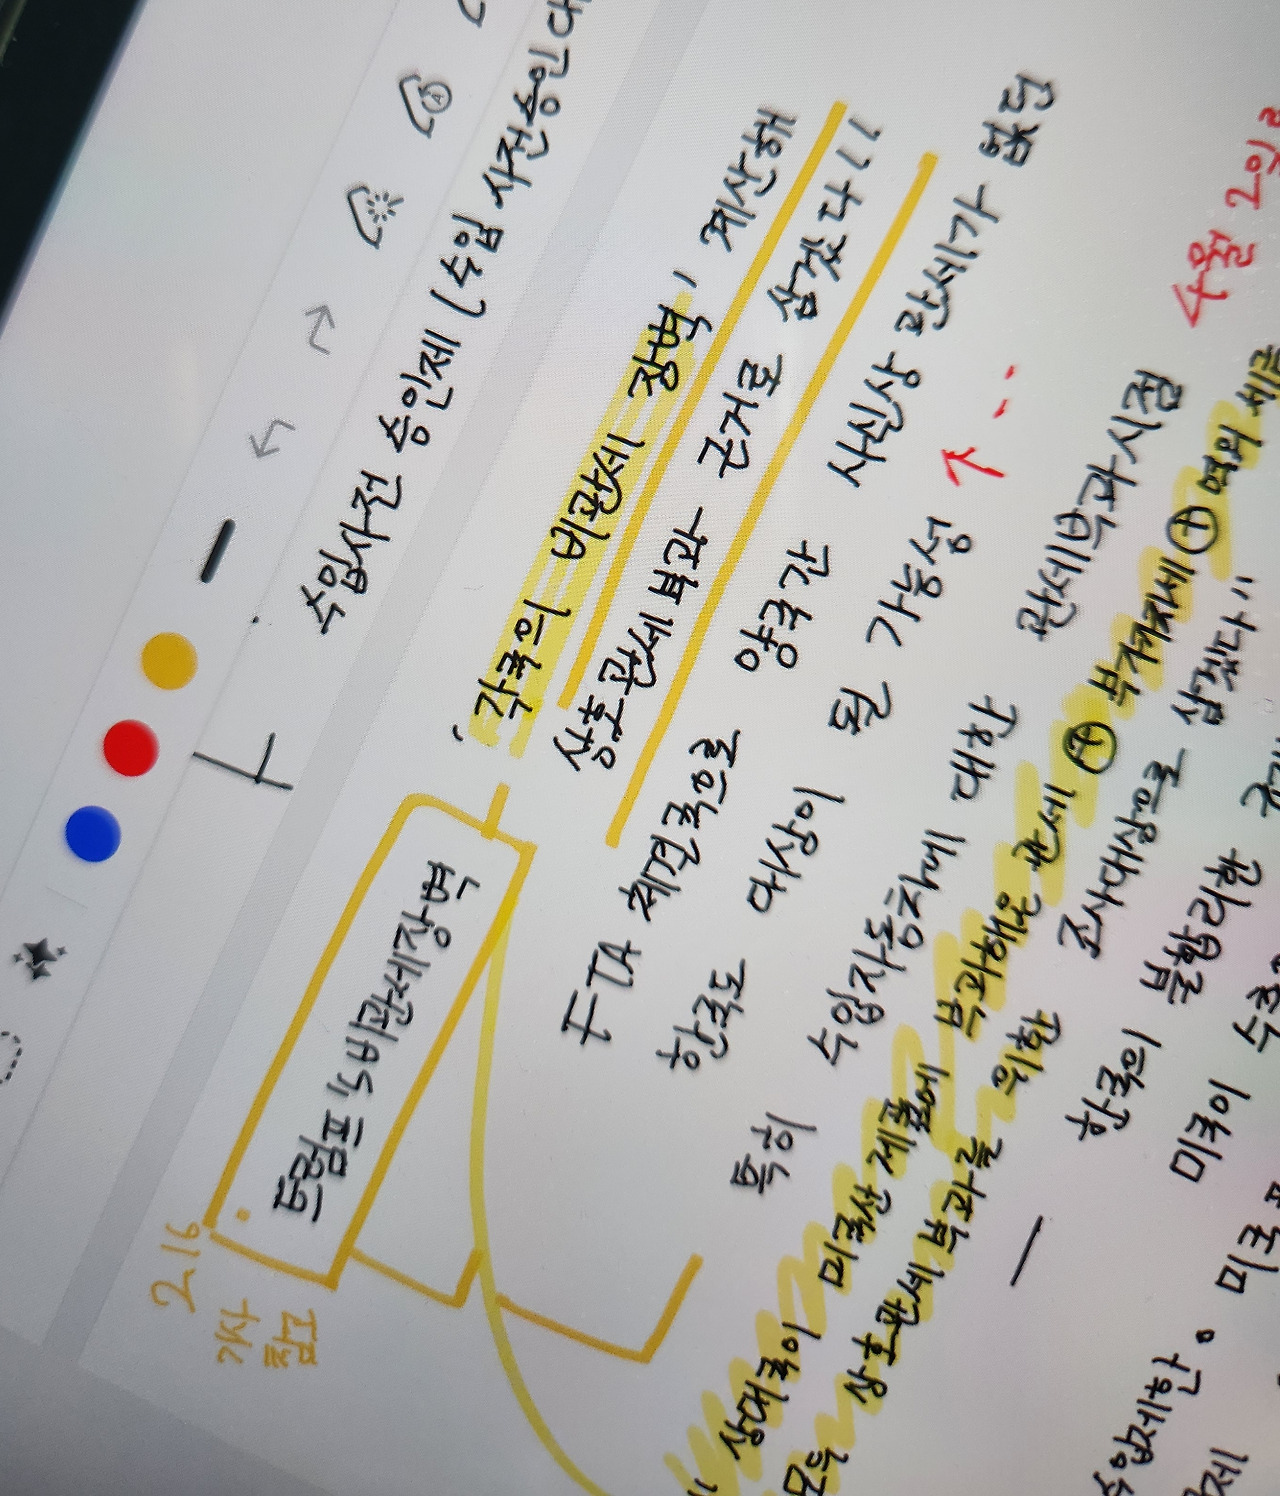 수입사전 승인제 (수입 사전승인
2.16
기사
참고
트럼프, 비관세장벽
각국의 비관세 장벽, 계산해
상호관세 부과 근거로 삼겠다!!
FTA 체결국으로 양국간 사실상 관세가 없던
한국도 대상이 될 가능성
특히 수입자동차에 대한 관세부과시점
4월 2일
" 상대국이 미국산 제품에 부과해온 관세 ⊕ 부가가치세 ⊕ 역외 세금
모두 상호관세 부과를 위한 조사대상으로 삼겠다"
한국의 불합리한
미국이
수입제한. 미국